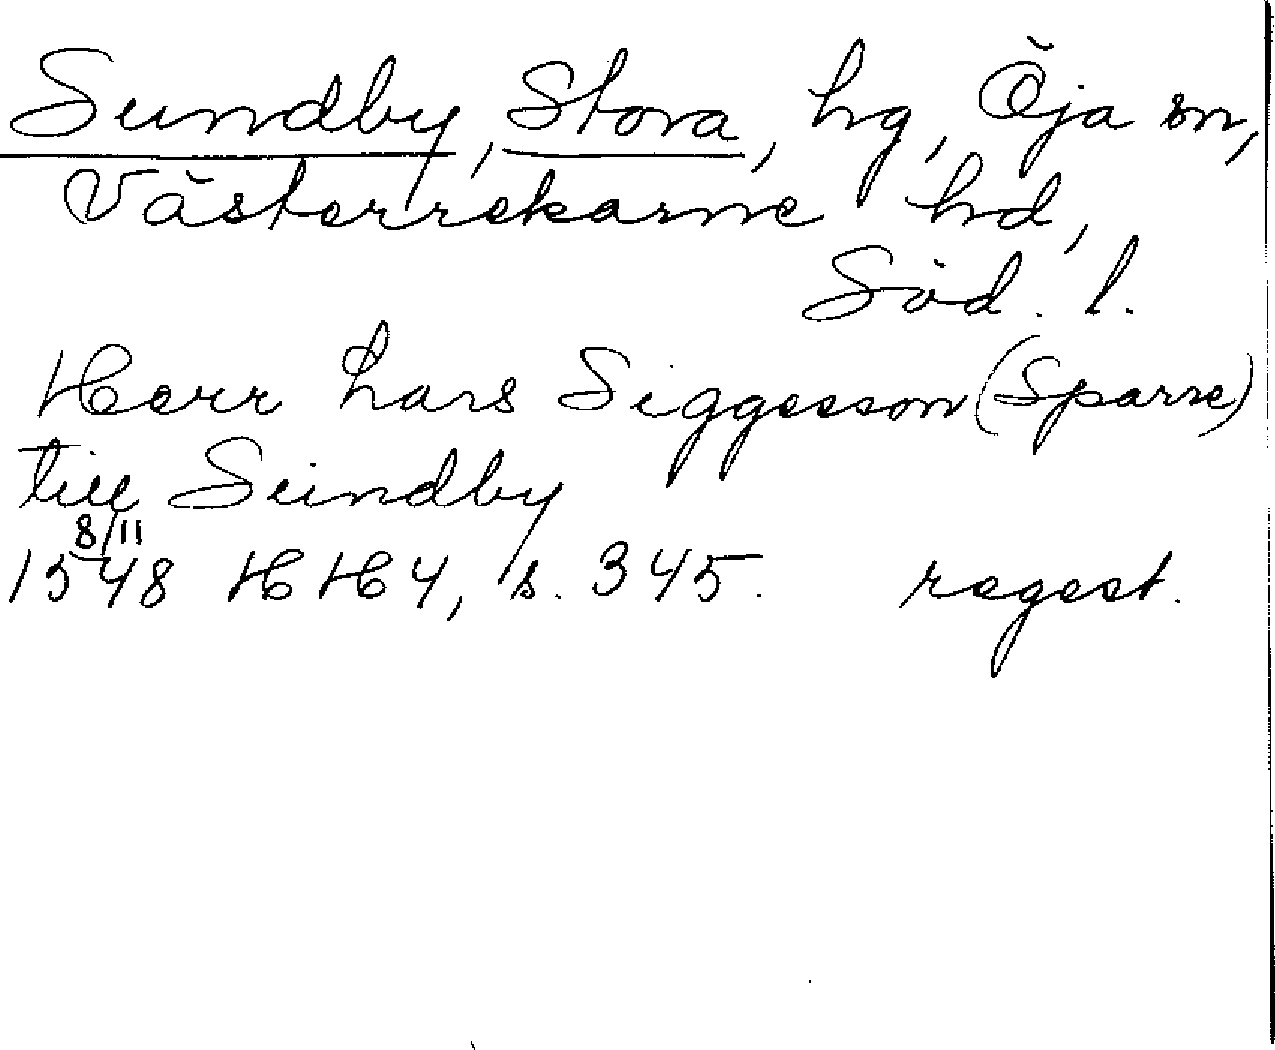 Sundby, Stora, hg, Öja sn,
Västerrekarne hd,
Söd. l.
Herr Lars Siggesson (Sparre)
till Sundby
8/11
1548 HH 4, s. 345. regest.